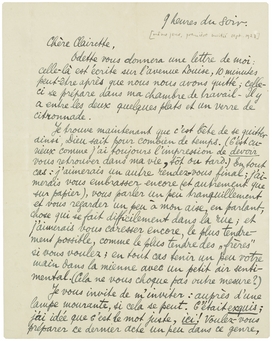 9 heures du soir.
Chère Clairette,
Odette vous donnera une lettre de moi:
celle-là est écrite sur l'avenue Louise, 10 minutes
peut-être après que nous nous avons quitté; celle-
ci se prépare dans ma chambre de travail - il y
a entre les deux quelques plats et un verre de
citronade.
Je trouve maintenant que c'est bête de se quitter
ainsi, bien sait pour combien de temps. (C'est cu-
rieux comme j'ai toujours l'impression de devoir
vous retrouver dans ma vie, tôt ou tard) En tout
cas: j'aimerais un autre rendez-vous final; j'ai-
merais vous embrasser encore (et autrement que
sur papier), vous parler un peu tranquillement
et vous regarder un peu à mon aise, en parlant,
chose qui se fait difficilement dans la rue; et
j'aimerais vous caresser encore, le plus tendre-
ment possible, comme le plus tendre des „frères"
si vous voulez; en tout cas tenir un peu votre
main dans la mienne avec un petit air senti-
mental (cela ne vous choque pas outre mesure?)
Je vous invite de m'inviter: auprès d'une
lampe mourante, si cela se peut. C'était exquis;
j'ai idée que c'est le mot juste, ici! Voulez-vous
préparer ce dernier acte un peu dans ce genre,